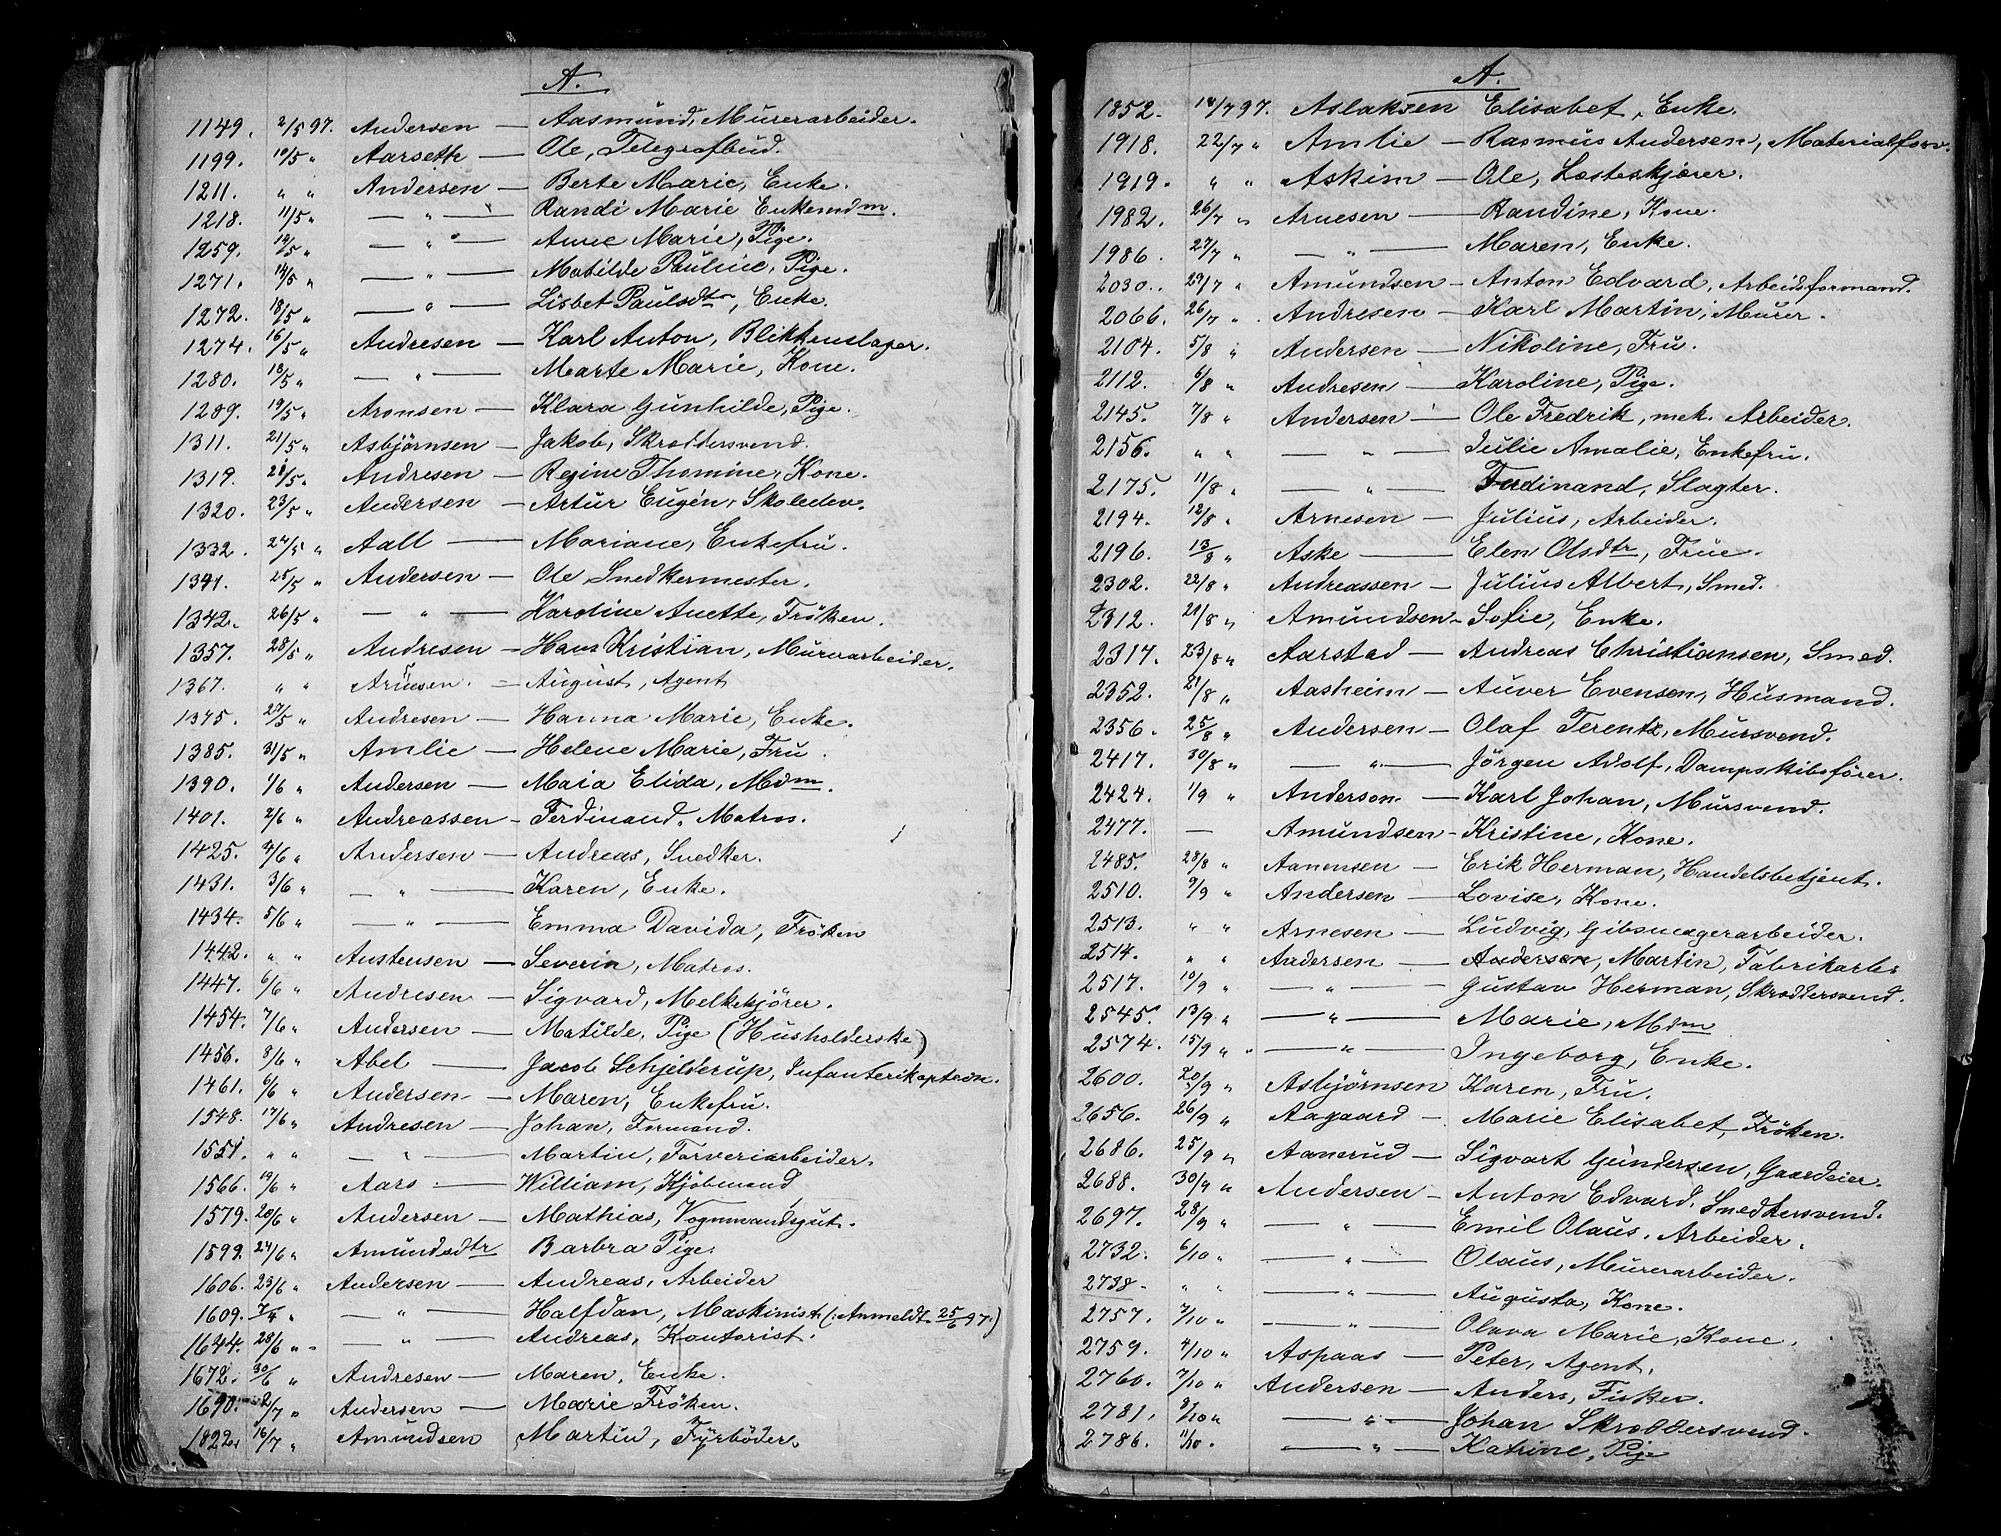 A.
1149. 2/5 97. Andersen — Aasmund, Murerarbeider.
1199. 10/5 " Aarseth — Ole, Telegrafbud.
1211. " " Andersen — Berte Marie, Enke.
1218. 11/5 " — " — Randi Marie Enkemdm.
1259. 14/5 " — " — Anne Marie, Pige.
1271. 14/5 " — " — Matilde Pauline, Pige.
1272. 18/5 " — " — Lisbet Paulsdtr, Enke.
1274. 16/5 " Andresen — Karl Anton, Blikkenslager.
1280. 18/5 " — " — Marte Marie, Kone.
1289. 19/5 " Aronsen — Klara Gunhilde, Pige.
1311. 21/5 " Asbjørnsen — Jakob, Skræddersvend.
1319. 21/5 " Andresen — Regine Thomine, Kone.
1320. 23/5 " Andersen — Artur Eugén, Skoleelev.
1332. 24/5 " Aall — Mariane, Enkefru.
1341. 25/5 " Andersen — Ole Snedkermester.
1342. 26/5 " — " — Karoline Anette, Frøken.
1357. 28/5 " Andresen — Hans Kristian, Murarbeider.
1367. " " Arnesen. = August, Agent
1375. 27/5 " Andresen — Hanna Marie, Enke.
1385. 31/5 " Amlie — Helene Marie, Fru.
1390. 1/6 " Andersen — Maia Elida, Mdm.
1401. 2/6 " Andreassen — Ferdinand, Matros.
1425. 4/6 " Andersen — Andreas, Snedker.
1431. 3/6 " — " — Karen, Enke.
1434. 5/6 " — " — Emma Davida, Frøken
1442. " " Austensen — Severin, Matros.
1447. 6/6 " Andresen — Sigvard, Melkekjører.
1454. 7/6 " Andersen — Matilde, Pige (Husholderske)
1456. 8/6 " Abel — Jacob Schjelderup, Infanterikaptein.
1461. 6/6 " Andersen — Maren, Enkefru.
1548. 17/6 " Andresen — Johan, Formand.
1551. " " — " — Martin, Farveriarbeider.
1566. 19/6 " Aars — William, Kjøbmand
1579. 20/6 " Andersen — Mathias, Vognmandsgut.
1599. 24/6 " Amundsdtr Barbra Pige.
1606. 23/6 " Andersen — Andreas, Arbeider
1609. " — " — Halfdan, Maskinist (: Anmeldt 25/6 97:)
1644. 28/6 " — " — Andreas, Kontorist.
1672. 30/6 " Andresen — Maren, Enke.
1690. 2/7 " Andersen — Marie Frøken.
1822. 16/7 " Amundsen Martin, Fyrbøder.
A.
1852. 18/7 97. Aslaksen Elisabet, Enke.
1918. 22/7 " Amlie — Rasmus Andersen, Materialforv.
1919. " " Askim — Ole, Læsteskjører.
1982. 26/7 " Arnesen — Randine, Kone.
1986. 27/7 " — " — Maren, Enke.
2030. 29/7 " Amundsen — Anton Edvard, Arbeidsformand.
2066. 26/7 " Andresen — Karl Martin, Murer.
2104. 5/8 " Andersen — Nikoline, Fru.
2112. 6/8 " Andresen — Karoline, Pige.
2145. 7/8 " Andersen — Ole Fredrik, mek. Arbeider.
2156. " " — " — Julie Amalie, Enkefru.
2175. 11/8 " — " — Ferdinand, Slagter.
2194. 12/8 " Arnesen — Julius, Arbeider.
2196. 13/8 " Aske — Elen Olsdtr, Frue.
2302. 22/8 " Andreassen — Julius Albert, Smed.
2312. 21/8 " Amundsen — Sofie, Enke.
2317. 23/8 " Aarstad — Andreas Christiansen, Smed.
2352. 21/8 " Aasheim — Auver Evensen, Husmand.
2356. 25/8 " Andersen — Olaf Terentz, Mursvend.
2417. 30/8 " — " — Jörgen Adolf, Dampskibsfører.
2424. 1/9 " Anderson — Karl Johan, Mursvend.
2477. — Amundsen — Kristine, Kone.
2485. 28/8 " Aanensen — Erik Herman, Handelsbetjent.
2510. 9/9 " Andersen — Lovise, Kone.
2513. " " Arnesen — Ludvig, Gibsmagerarbeider.
2514. " " Andersen — Andersen, Martin, Fabrikarb.
2517. 10/9 " — " — Gustav Herman, Skræddersvend.
2545. 13/9 " — " — Marie, Mdm
2574. 15/9 " — " — Ingeborg, Enke.
2600. 20/9 " Asbjørnsen Karen, Fru.
2656. 26/9 " Aagaard — Marie Elisabet, Frøken.
2686. 25/9 " Aanerud — Sigvart Gundersen, Gaardeier.
2688. 30/9 " Andersen — Anton Edvard, Snedkersvend.
2697. 28/9 " — " — Emil Olaus, Arbeider.
2732. 6/10 " — " — Olaus, Murerarbeider.
2738. " " — " — Augusta, Kone.
2757. 7/10 " — " — Olava Marie, Kone.
2759. 4/10 " Aspaas — Peter, Agent.
2760. 7/10 " Andersen — Anders, Fisker.
2781. 8/10 " — " — Johan Skræddersvend.
2786. 11/10. — " — Katrine, Pige